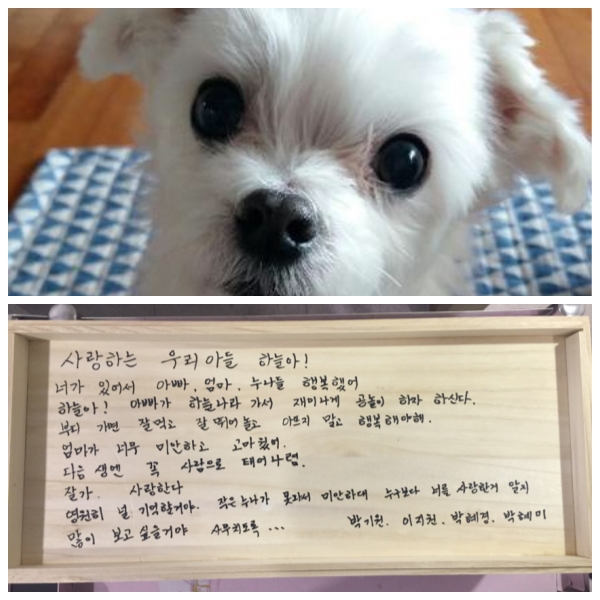 사랑하는 우리 아들 하늘아!
너가 있어서 아빠, 엄마, 누나들 행복했어
하늘아! 아빠가 하늘나라 가서 재미나게 공놀이 하자 하신다.
부디 가면 잘먹고 잘 뛰어놀고 아프지 말고 행복해야해.
엄마가 너무 미안하고 고마웠어.
다음 생엔 꼭 사람으로 태어나렴.
잘가. 사랑한다
영원히 널 기억할거야. 작은누나가 못와서 미안하대 누구보다 너를 사랑한거 알지
많이 보고 싶을거야 사무치도록...
박기원. 이지천. 박혜경. 박혜미